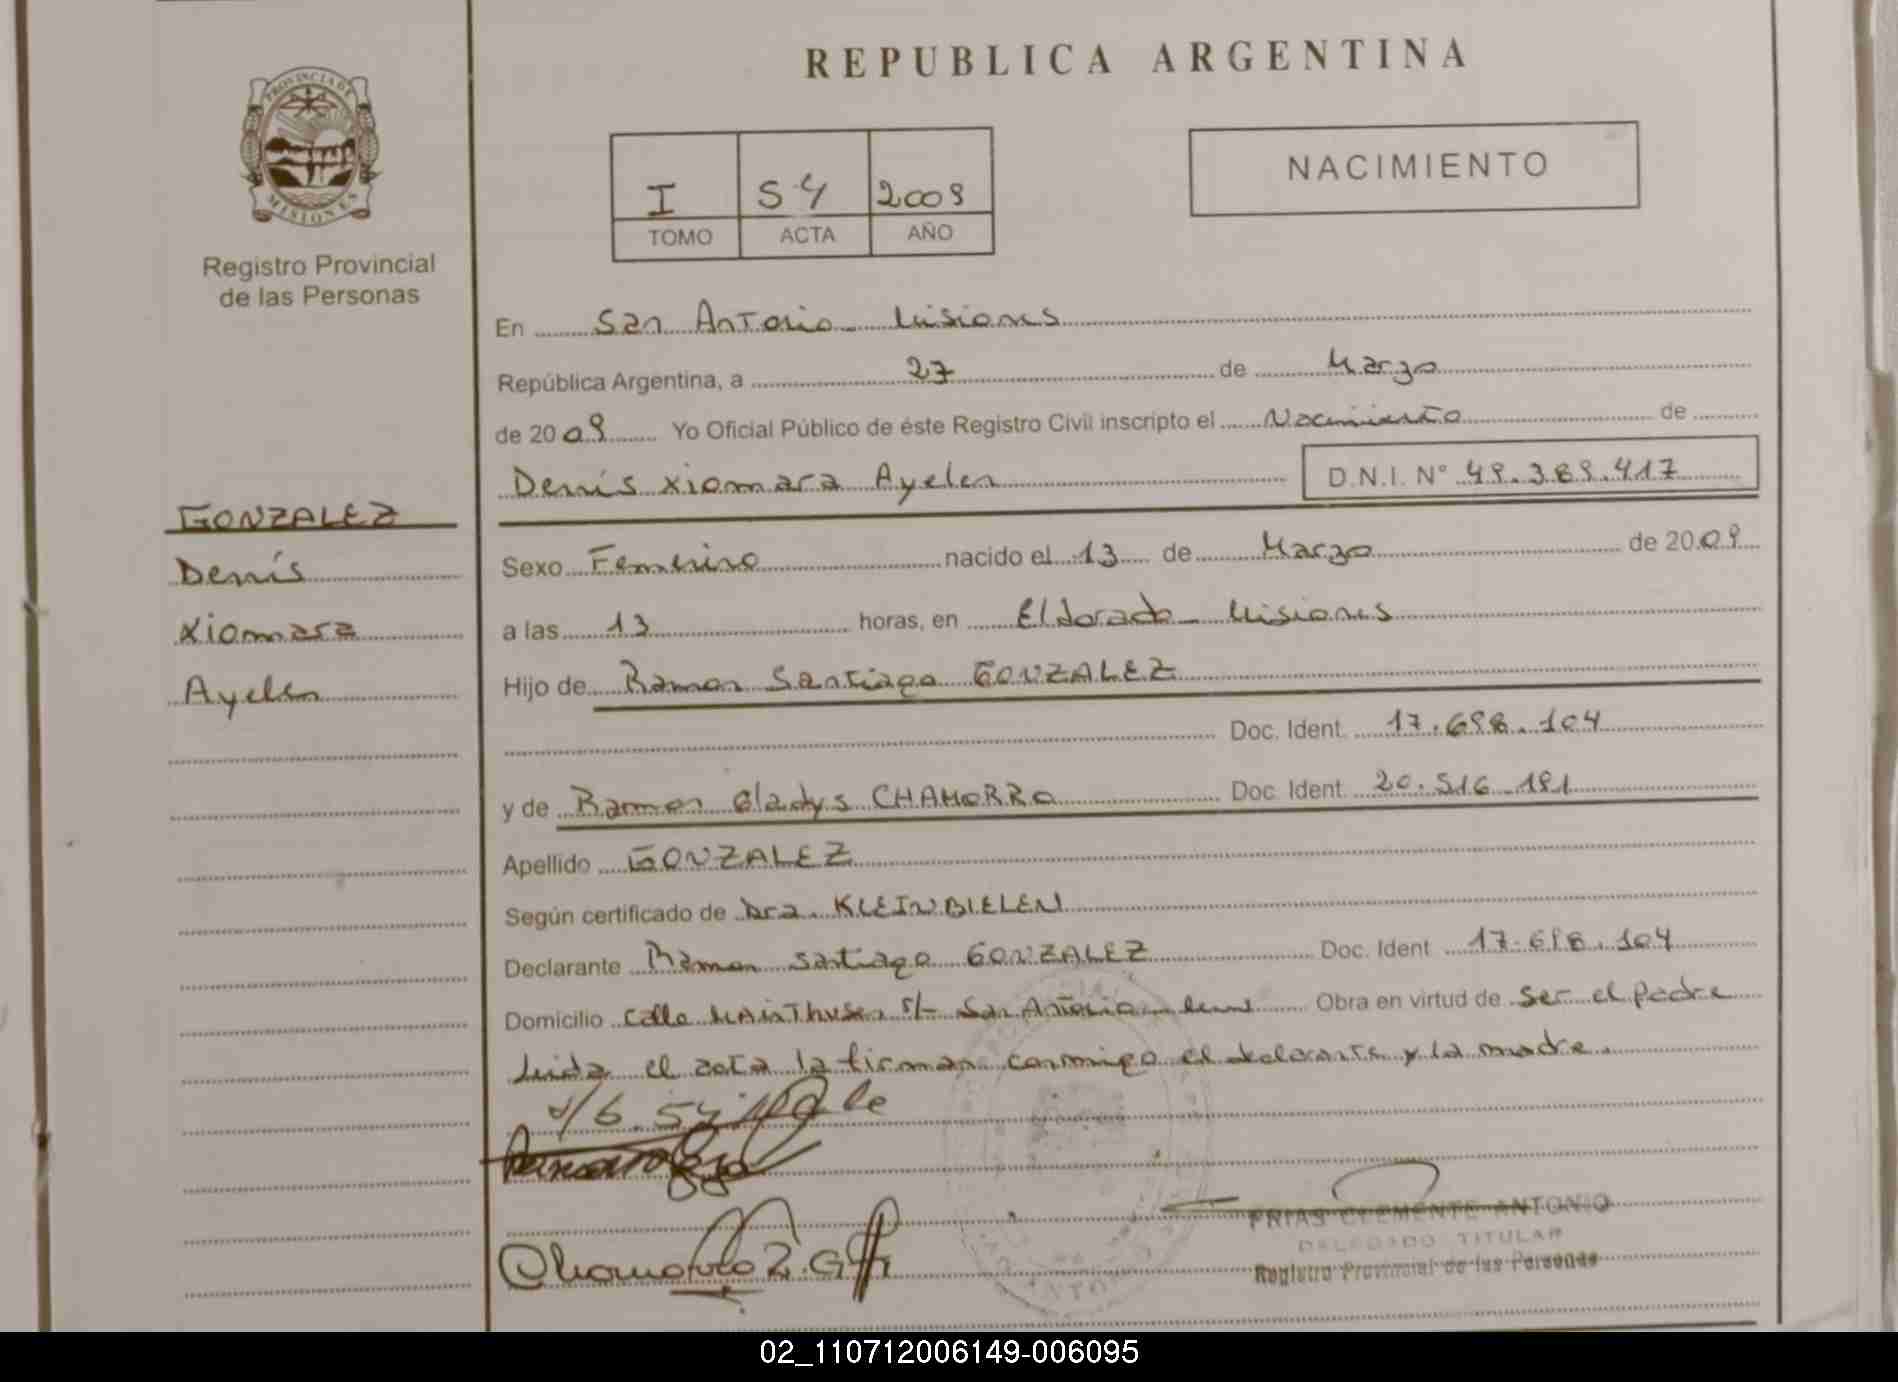 REPUBLICA ARGENTINA
PROVINCIA DE
MISIONES
Registro Provincial
de las Personas
I 54 2009
TOMO ACTA AÑO
NACIMIENTO
En San Antonio Misiones
República Argentina, a 27 de Marzo
de 2009 Yo Oficial Público de éste Registro Civil inscripto el Nacimiento de
Denís Xiomara Ayelen D.N.I. Nº 49.389.417
GONZALEZ
Denís
Xiomara
Ayelen
Sexo Femenino nacido el 13 de Marzo de 2009
a las 13 horas, en Eldorado Misiones
Hijo de Ramon Santiago GONZALEZ
Doc. Ident. 17.698.104
y de Ramon Gladys CHAMORRO Doc. Ident. 20.516.191
Apellido GONZALEZ
Según certificado de Dra. KLEINBIELEN
Declarante Ramon Santiago GONZALEZ Doc. Ident 17.698.104
Domicilio Calle s/- San Antonio Obra en virtud de ser el padre
Leida el acta la firman conmigo el declarante y la madre.
FRIAS CLEMENTE ANTONIO
DELEGADO TITULAR
Registro Provincial de las Personas
02_110712006149-006095